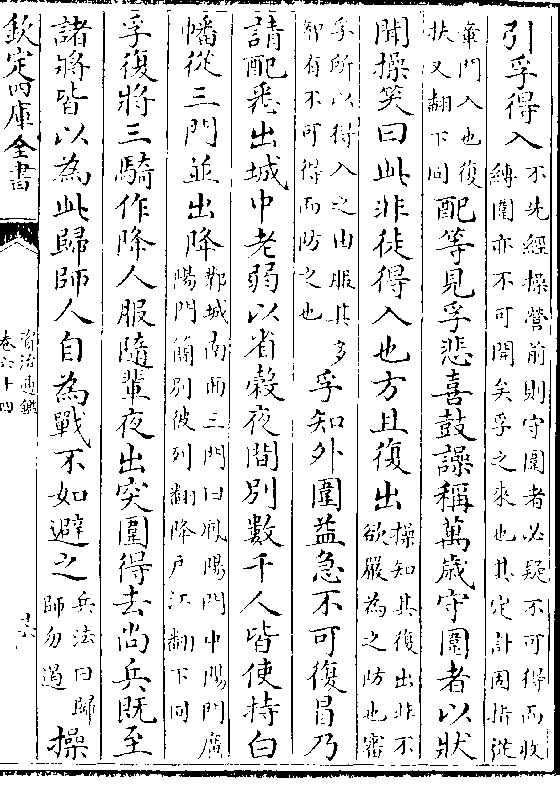 引孚得入不先經操營前則守圍者必疑不可得而收縛圍亦不可開矣孚之來也其定計固指從
章門入也復扶又翻下同配等見孚悲喜鼓譟稱萬歲守圍者以狀
聞操笑曰此非徒得入也方且復出操知其復出非不欲嚴為之防也審
孚所以得入之由服其多智有不可得而防之也孚知外圍益急不可復冒乃
請配悉出城中老弱以省穀夜簡別數千人皆使持白
幡從三門並出降鄴城南面三門曰鳳陽門中陽門廣陽門簡別彼列翻降戶江翻下同
孚復將三騎作降人服隨輩夜出突圍得去尚兵既至
諸將皆以為此歸師人自為戰不如避之兵法曰歸師勿遏操
欽定四庫全書
資治通鑑
卷六十四